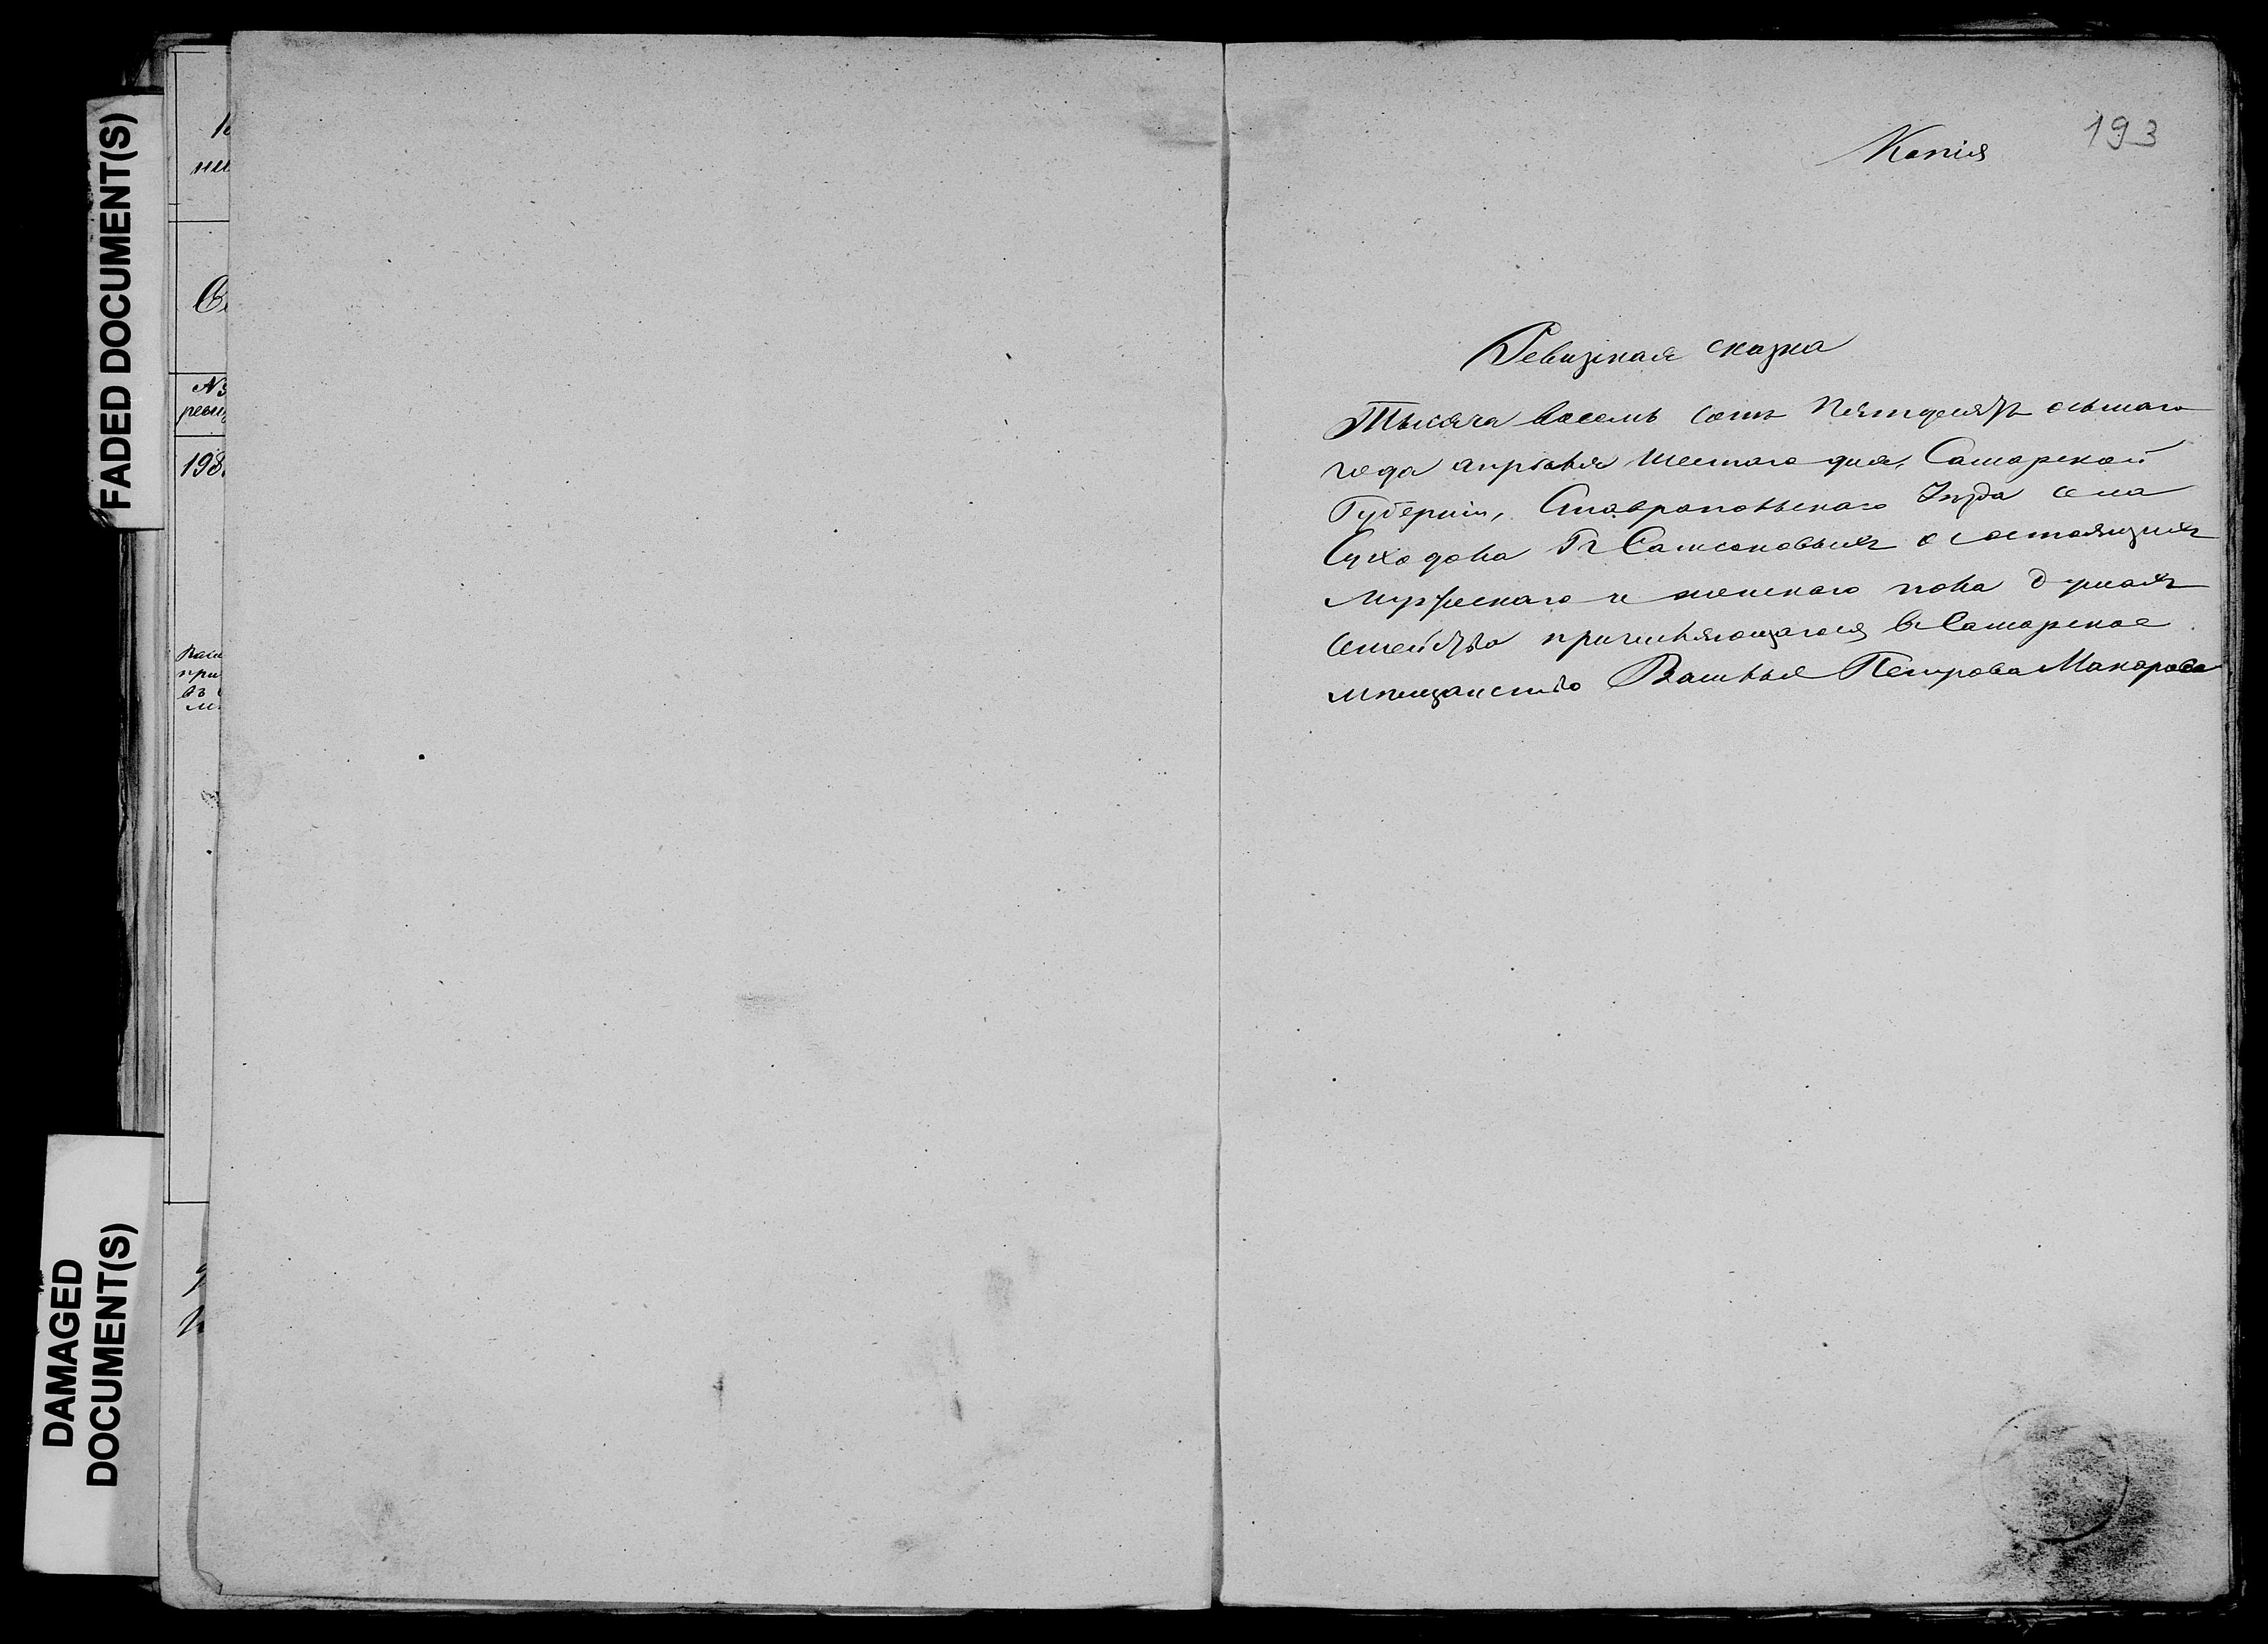 FADED DOCUMENT(S)
DAMAGED
DOCUMENT(S)
193
Копія
Ревизская сказка
Тысяча восемь сотъ пятьдесятъ осьмаго
года апрѣля шестаго дня, Самарской
Губерніи, Ставропольскаго Уѣзда села
Суходола Гг Самсоновыхъ о состоящихъ
мужескаго и женскаго пола душахъ
семейства причисляющагося въ Самарское
мѣщанство Василья Петрова Макарова